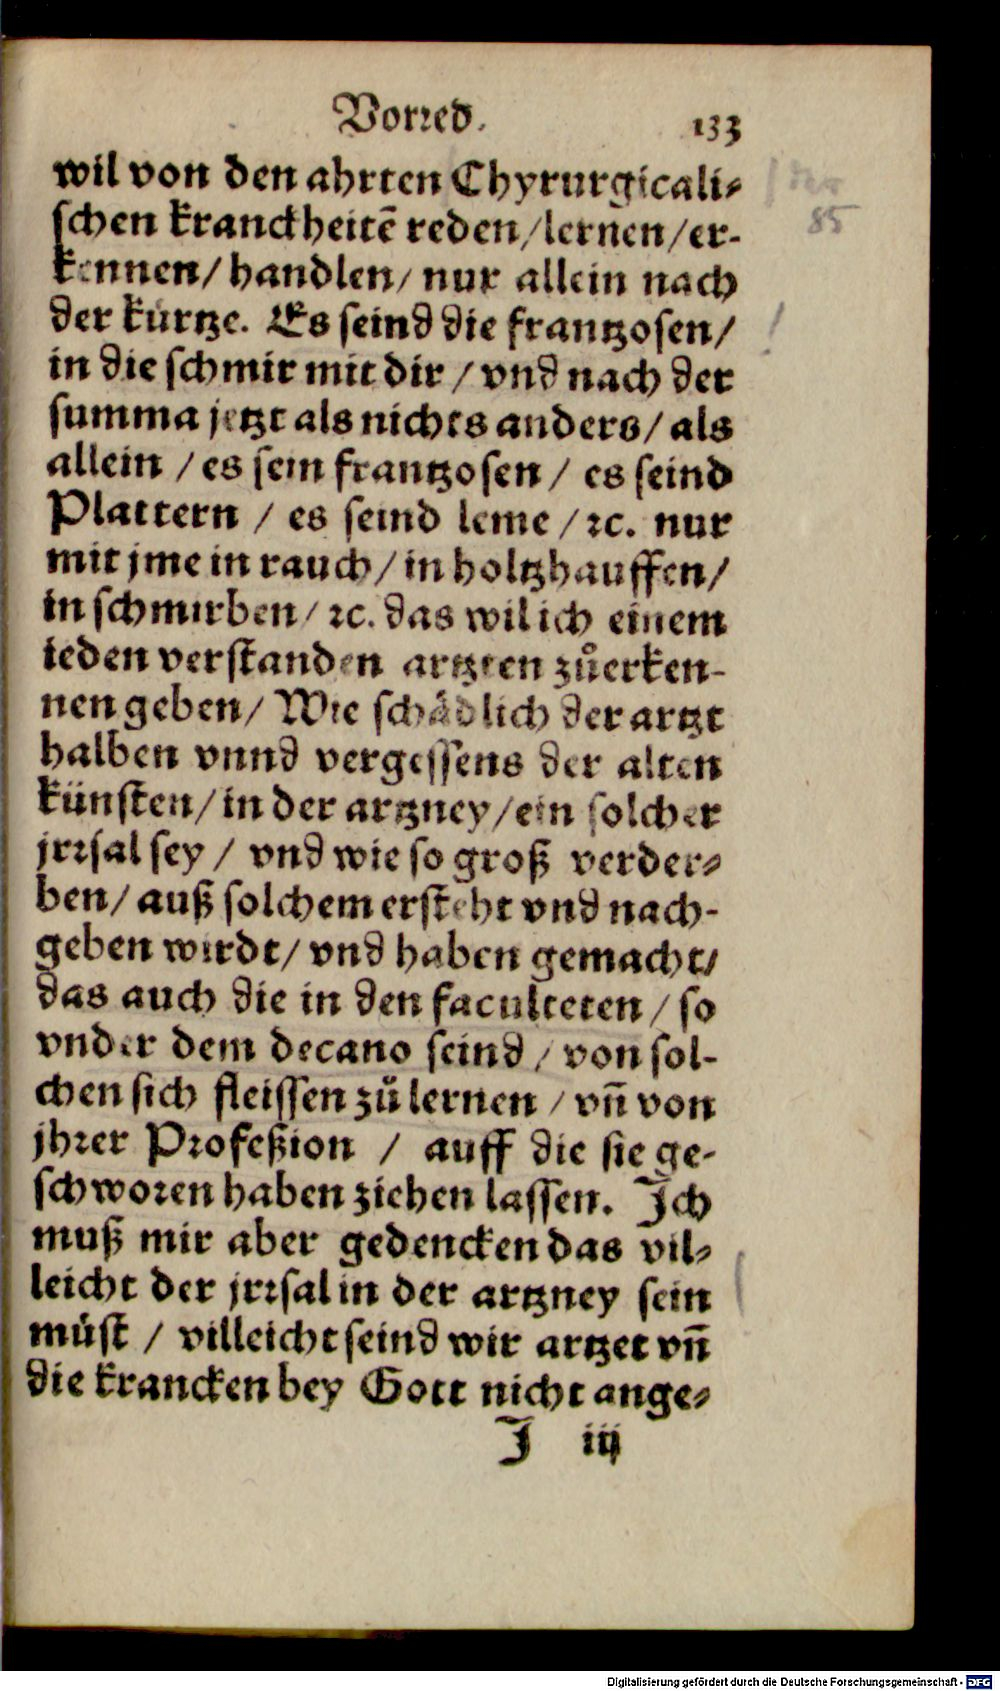 Vorꝛed. 133
wil von den ahrten Chyrurgicali⸗
schen kranckheitẽ reden/lernen/er-
kennen/ handlen/ nur allein nach
der kuͤrtze. Es seind die frantzosen/
in die schmir mit dir / vnd nach der
summa jetzt als nichts anders/ als
allein / es sein frantzosen / es seind
Plattern / es seind leme / ꝛc. nur
mit jme in rauch/ in holtzhauffen/
in schmirben/ ꝛc. das wil ich einem
ieden verstanden artzten zuͦ erken-
nen geben/ Wie schaͤdlich der artzt
halben vnnd vergessens der alten
künsten/ in der artzney/ ein solcher
jrꝛsal sey / vnd wie so groß verder⸗
ben/ auß solchem ersteht vnd nach-
geben wirdt/ vnd haben gemacht/
das auch die in den faculteten / so
vnder dem decano seind / von sol-
chen sich fleissen zuͦ lernen / vñ von
jhꝛer Pꝛofeßion / auff die sie ge-
schwoꝛen haben ziehen lassen. Ich
muß mir aber gedencken das vil⸗
leicht der jrꝛsal in der artzney sein
muͤst / villeicht seind wir artzet vñ
die krancken bey Gott nicht ange⸗
J iij
der
85
Digitalisierung gefördert durch die Deutsche Forschungsgemeinschaft - DFG